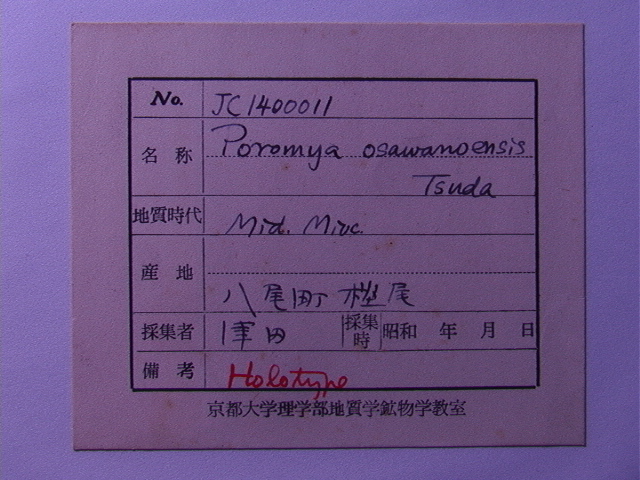 No. JC1400011
名称 Poromya osawanoensis
Tsuda
地質時代 Mid. Mioc.
産地
八尾町 樫尾
採集者 津田 採集時 昭和 年 月 日
備考 Holotype
京都大学理学部地質学鉱物学教室